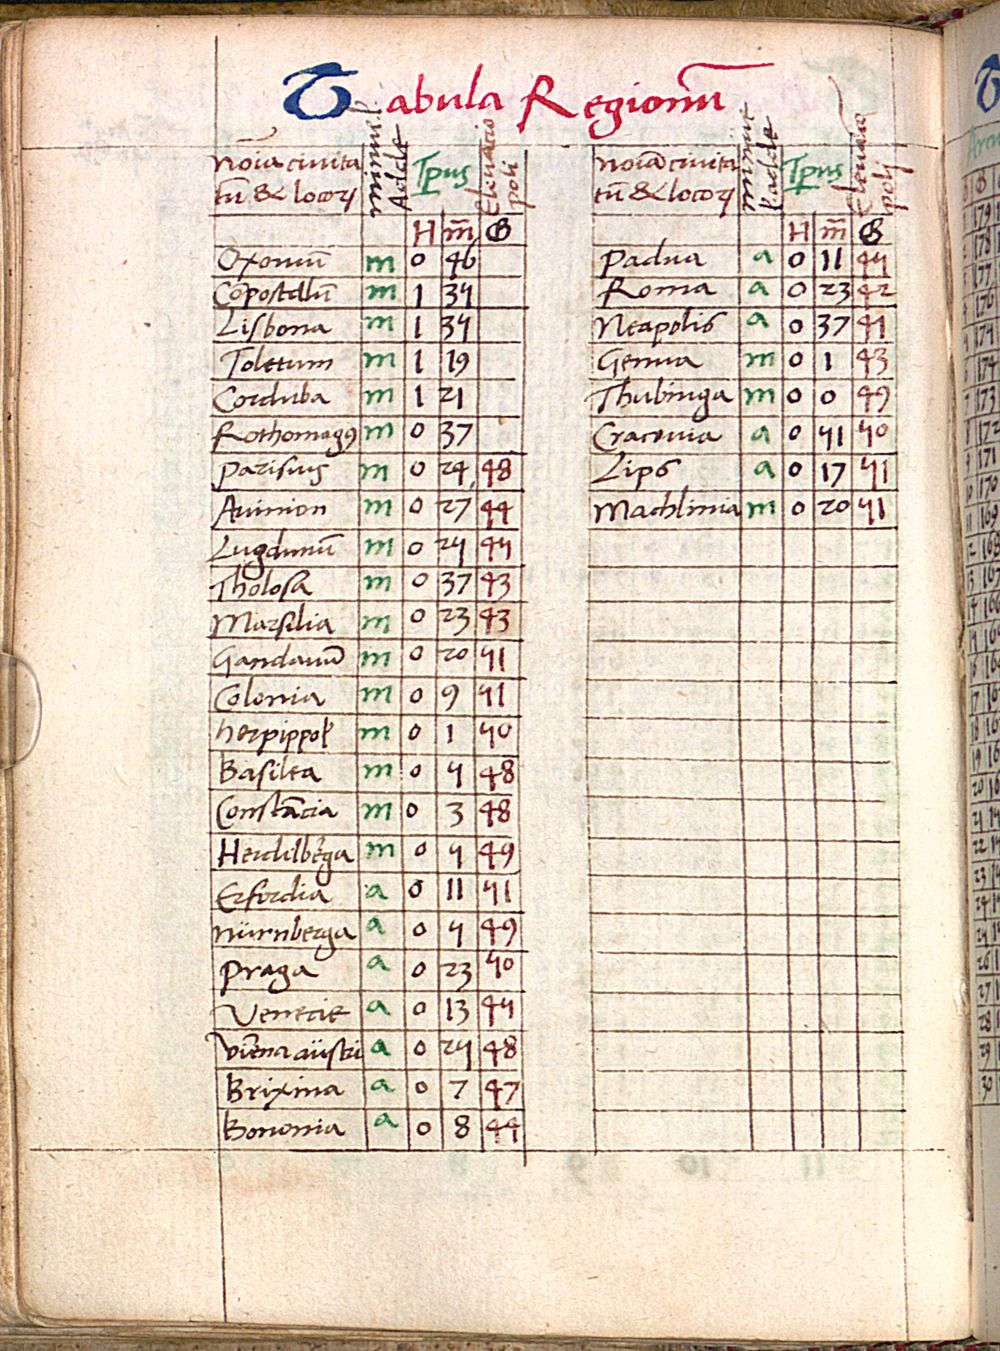 Tabula Regionū
Noīa civita
tū & locorꝝ
minue l
Adde
Tp̄us
Elevacio
poli
H m̄ G
Oxoniū m 0 46
Cōpostellū m 1 35
Lisbona m 1 35
Toletum m 1 19
Corduba m 1 21
Rothomagꝰ m 0 37
Parisius m 0 24 48
Avinion m 0 27 44
Lugdunū m 0 25 45
Tholosa m 0 37 43
Marsilia m 0 23 43
Gandavū m 0 20 51
Colonia m 0 9 51
herpippol̄ m 0 1 50
Basilea m 0 5 48
Constācia m 0 3 48
Heidelberga m 0 5 49
Erfordia a 0 11 51
nürnberga a 0 5 49
praga a 0 23 50
Venecie a 0 13 45
viēna austri a 0 25 48
Brixina a 0 7 47
Bononia a 0 8 44
Noīa civita
tū & locorꝝ
minue
l adde
Tp̄us
Elevacio
poli
H m̄ G
Padua a 0 11 45
Roma a 0 23 42
Neapolis a 0 37 41
Genua m 0 1 43
Thubinga m 0 0 49
Cracovia a 0 51 50
Lips a 0 17 51
Machlinia m 0 20 51